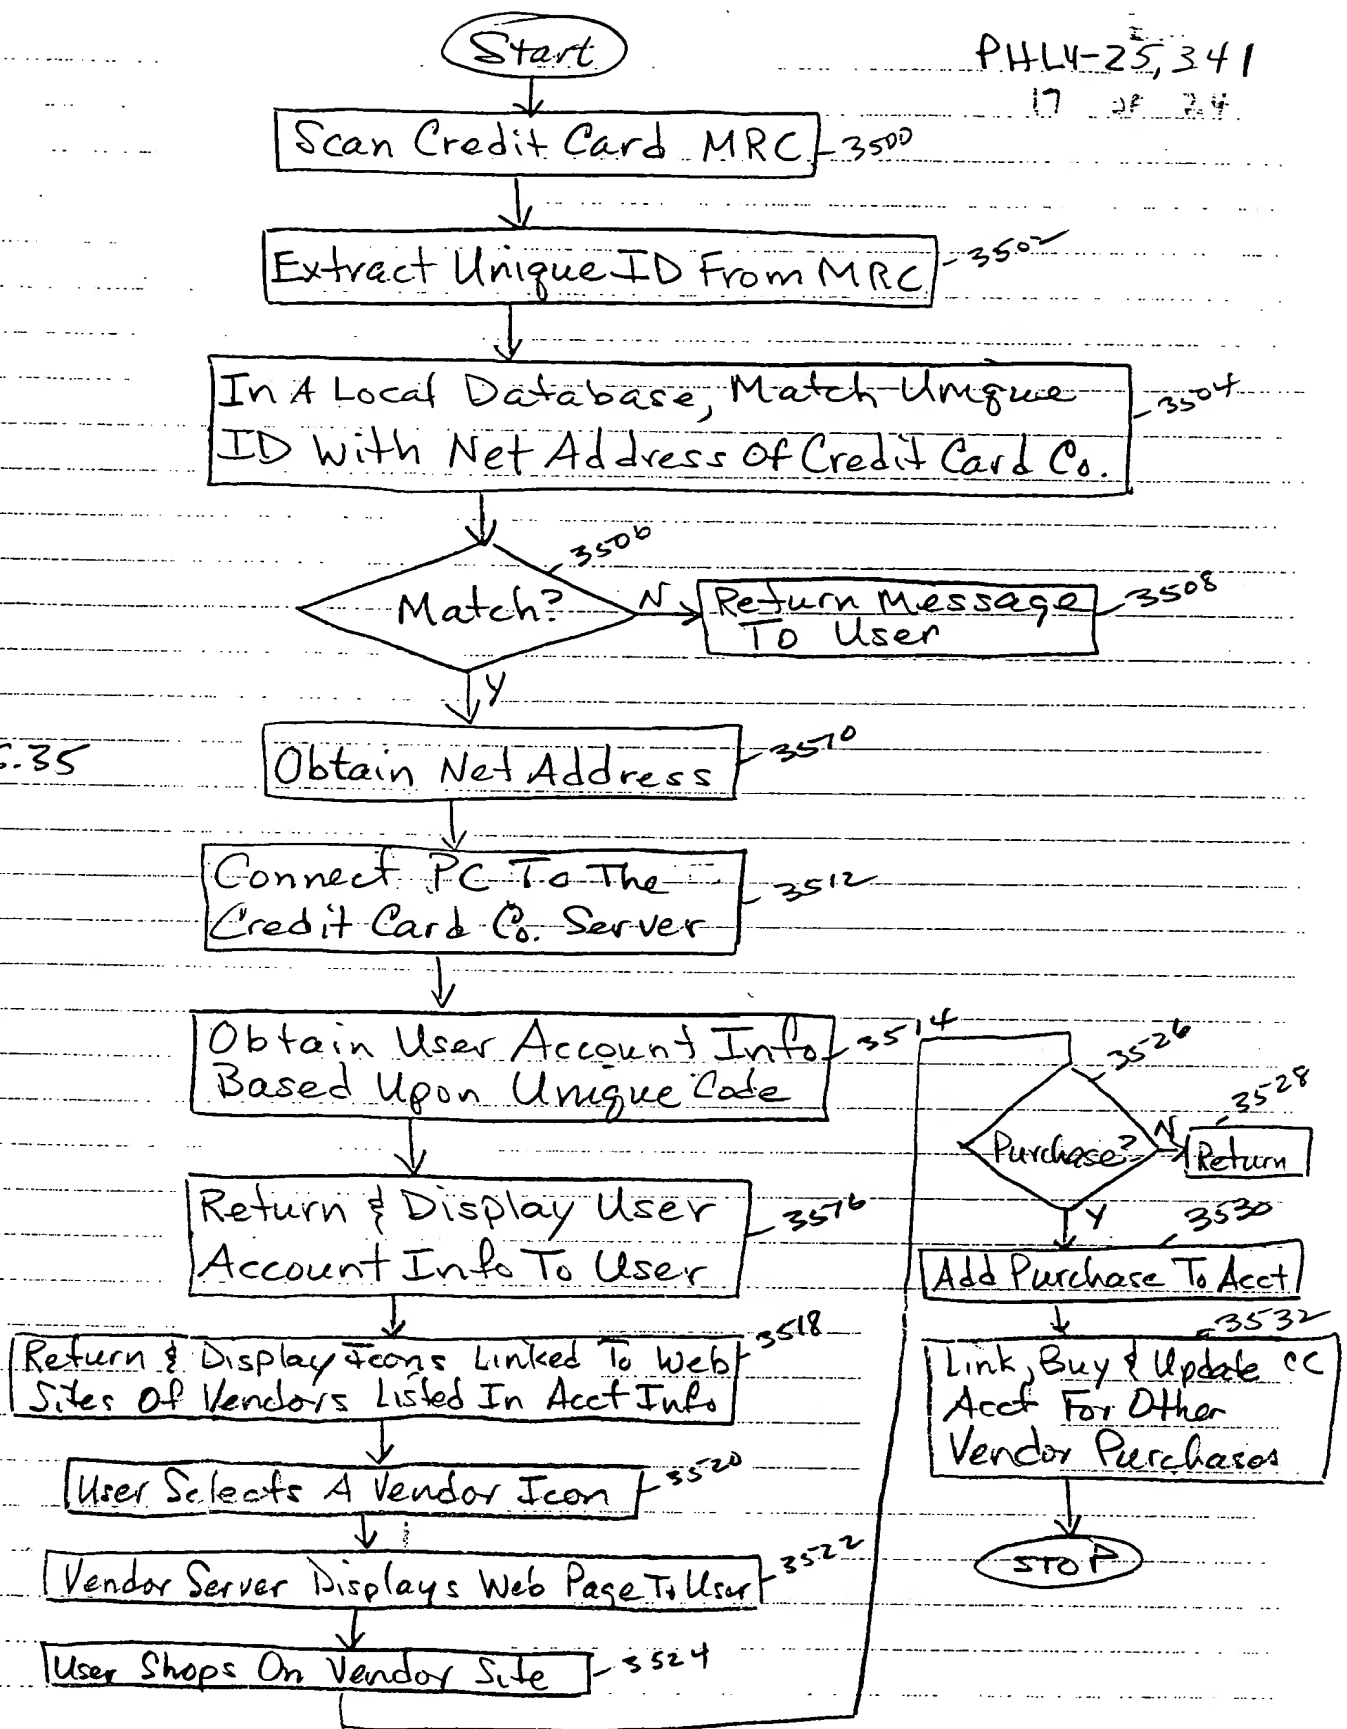 Start
PHLY-25,341
17 OF 24
Scan Credit Card MRC
3500
Extract Unique ID From MRC
3502
In A Local Database, Match Unique
ID With Net Address Of Credit Card Co.
3504
3506
Match?
N
Return Message
To User
3508
Y
.35
Obtain Net Address
3510
Connect PC To The
Credit Card Co. Server
3512
Obtain User Account Info
Based Upon Unique Code
3514
Return & Display User
Account Info To User
3516
Return & Display Icons Linked To Web
Sites Of Vendors Listed In Acct Info
3518
User Selects A Vendor Icon
3520
Vendor Server Displays Web Page To User
3522
User Shops On Vendor Site
3524
3526
Purchase?
N
3528
Return
Y
3530
Add Purchase To Acct
3532
Link, Buy & Update CC
Acct For Other
Vendor Purchases
STOP